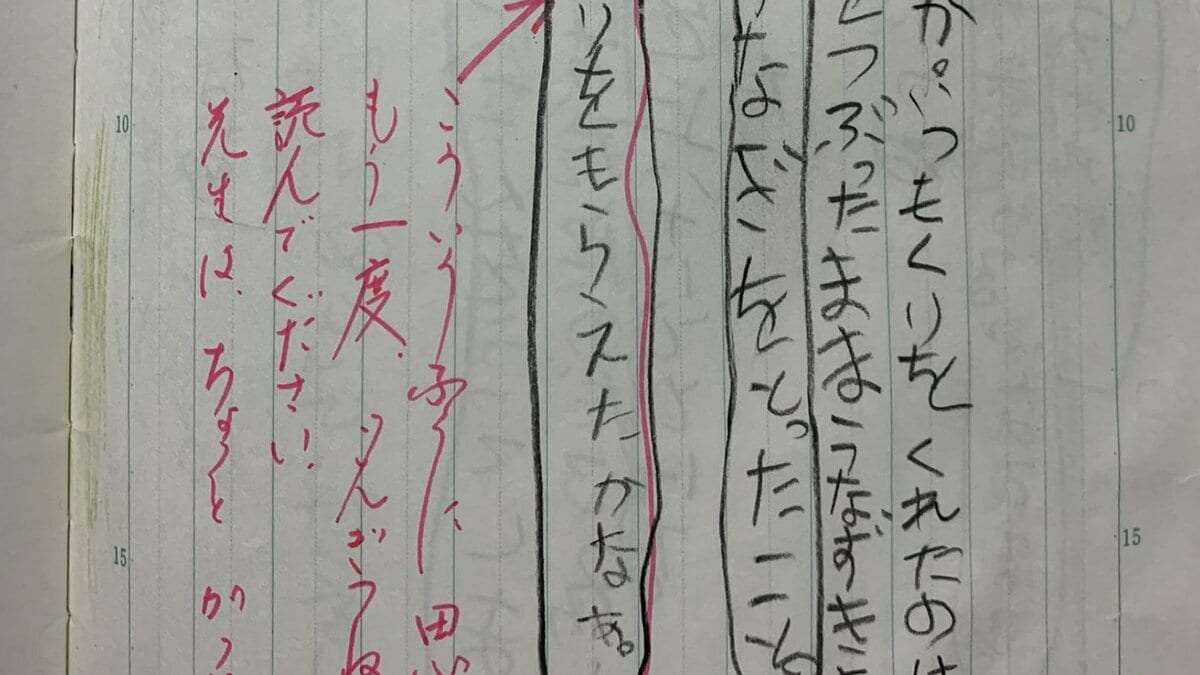 か。いつもくりを くれたのは
とつぶったままにうなずきま
なぎどこをとったこと
りをもらえたかなあ。
こういうふうに 思
もう一度、ごんぎつね
読んでください。
先生は、ちょっと がっ
10
15
10
15